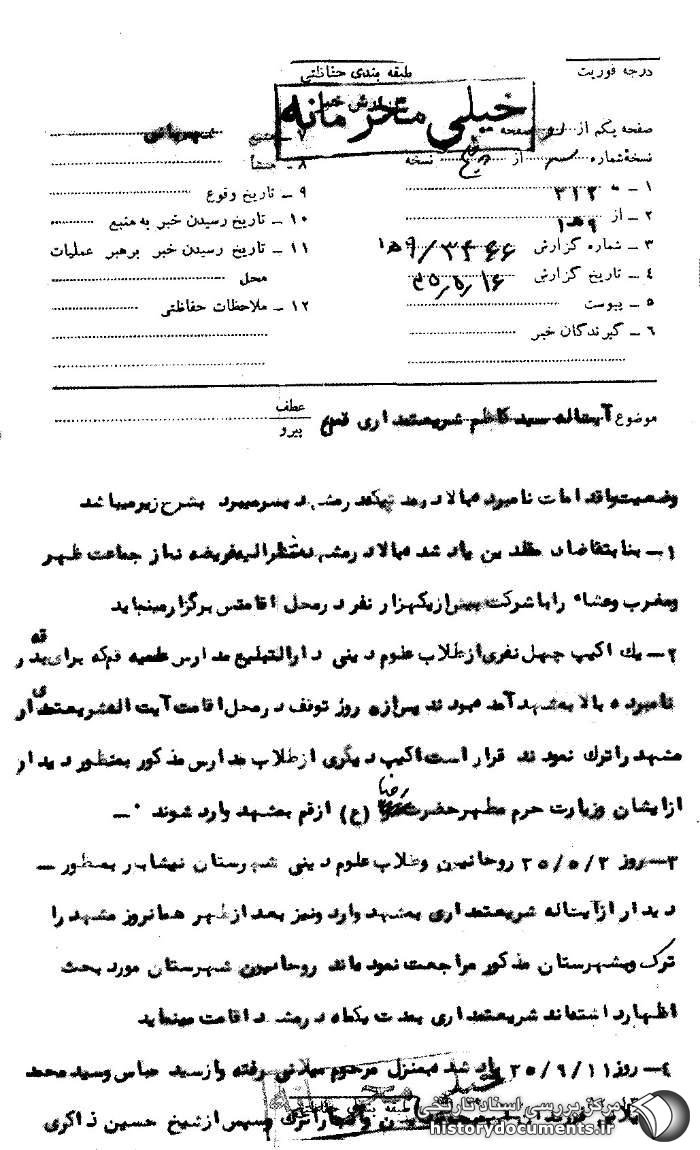 درجه فوریت
طبقه بندی حفاظتی
گزارش خبر
خیلی محرمانه
صفحه یکم از صفحه
نسخهٔ شماره از نسخه
۱ ـ به ۳۱۲
۲ ـ از ۹ه۱
۳ ـ شماره گزارش ۹ه۱/۳۴۶۶
۴ ـ تاریخ گزارش ۳۵/۵/۱۶
۵ ـ پیوست
۶ ـ گیرندگان خبر
۷ ـ منبع تهرانی
۸ ـ منشأ
۹ ـ تاریخ وقوع
۱۰ ـ تاریخ رسیدن خبر به منبع
۱۱ ـ تاریخ رسیدن خبر برهبر عملیات
محل
۱۲ ـ ملاحظات حفاظتی
موضوع آیتاله سید کاظم شریعتمداری
عطف
پیرو
وضعیت واقدامات نامبرده بالا در مدتیکه در مشهد بسر میبرد بشرح زیر میباشد
۱ـ بنا بتقاضای مقلدین یاد شده بالا در مشهد فریضه نماز جماعت ظهر
ومغرب وعشاء را با شرکت بیش از یکهزار نفر در محل اقامتش برگزار مینماید
۲ـ یك اکیپ چهل نفری از طلاب علوم دینی دارالتبلیغ مدارس علمیه قم که برای بدرقه
نامبرده بالا بمشهد آمده بودند پس از ۵ روز توقف در محل اقامت آیت اله شریعتمداری
مشهد را ترك نمودند قرار است اکیپ دیگری از طلاب مدارس مذکور بمنظور دیدار
از ایشان وزیارت حرم مطهر حضرت رضا (ع) از قم بمشهد وارد شوند ۰ ـ
۳ـ روز ۲۵/۵/۲ روحانیون وطلاب علوم دینی شهرستان نیشابور بمنظور ـ
دیدار از آیتاله شریعتمداری بمشهد وارد ونیز بعد از ظهر همانروز مشهد را
ترك وبشهرستان مذکور مراجعت نموده اند روحانیون شهرستان مورد بحث
اظهار داشته اند شریعتمداری بمدت یکماه در مشهد اقامت مینماید
۴ـ روز ۲۵/۹/۱۱ یاد شده بمنزل مرحوم میلانی رفته واز سید عباس وسید محمد
میلانی وسپس از شیخ حسین ذاکری
خیلی محرمانه
طبقه بندی حفاظتی
مرکز بررسی اسناد تاریخی
historydocuments.ir